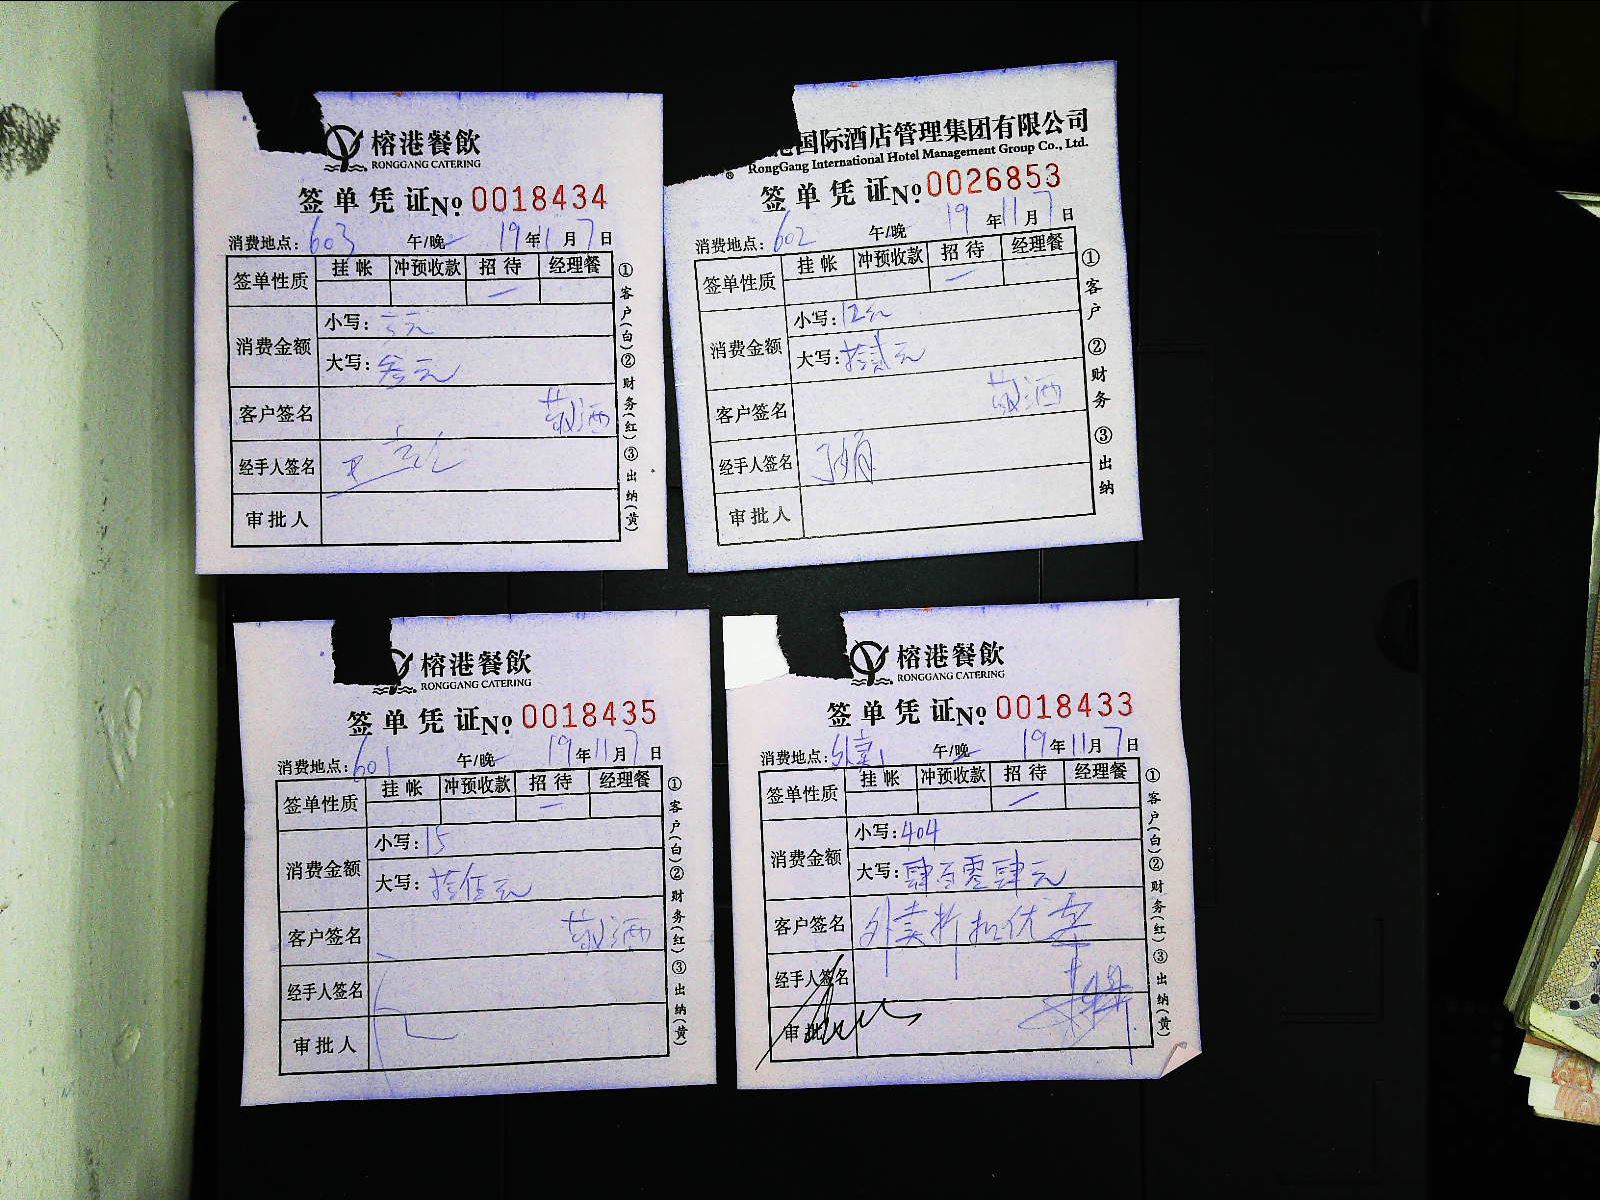 榕港餐飲
RONGGANG CATERING
签单凭证 № 0018434
消费地点: 603 午/晚 19年11月7日
签单性质 挂帐 冲预收款 招待 经理餐
消费金额 小写: 3元
大写: 叁元
客户签名 敬酒
经手人签名
审批人
①客户(白)②财务(红)③出纳(黄)
国际酒店管理集团有限公司
RongGang International Hotel Management Group Co., Ltd.
签单凭证 № 0026853
消费地点: 602 午/晚 19年11月7日
签单性质 挂帐 冲预收款 招待 经理餐
消费金额 小写: 12元
大写: 拾贰元
客户签名 敬酒
经手人签名
审批人
①客户 ②财务 ③出纳
榕港餐飲
RONGGANG CATERING
签单凭证 № 0018435
消费地点: 601 午/晚 19年11月7日
签单性质 挂帐 冲预收款 招待 经理餐
消费金额 小写: 15
大写: 拾伍元
客户签名 敬酒
经手人签名
审批人
①客户(白)②财务(红)③出纳(黄)
榕港餐飲
RONGGANG CATERING
签单凭证 № 0018433
消费地点: 外卖1 午/晚 19年11月7日
签单性质 挂帐 冲预收款 招待 经理餐
消费金额 小写: 404
大写: 肆百零肆元
客户签名 外卖折扣优
经手人签名
审批人
①客户(白)②财务(红)③出纳(黄)